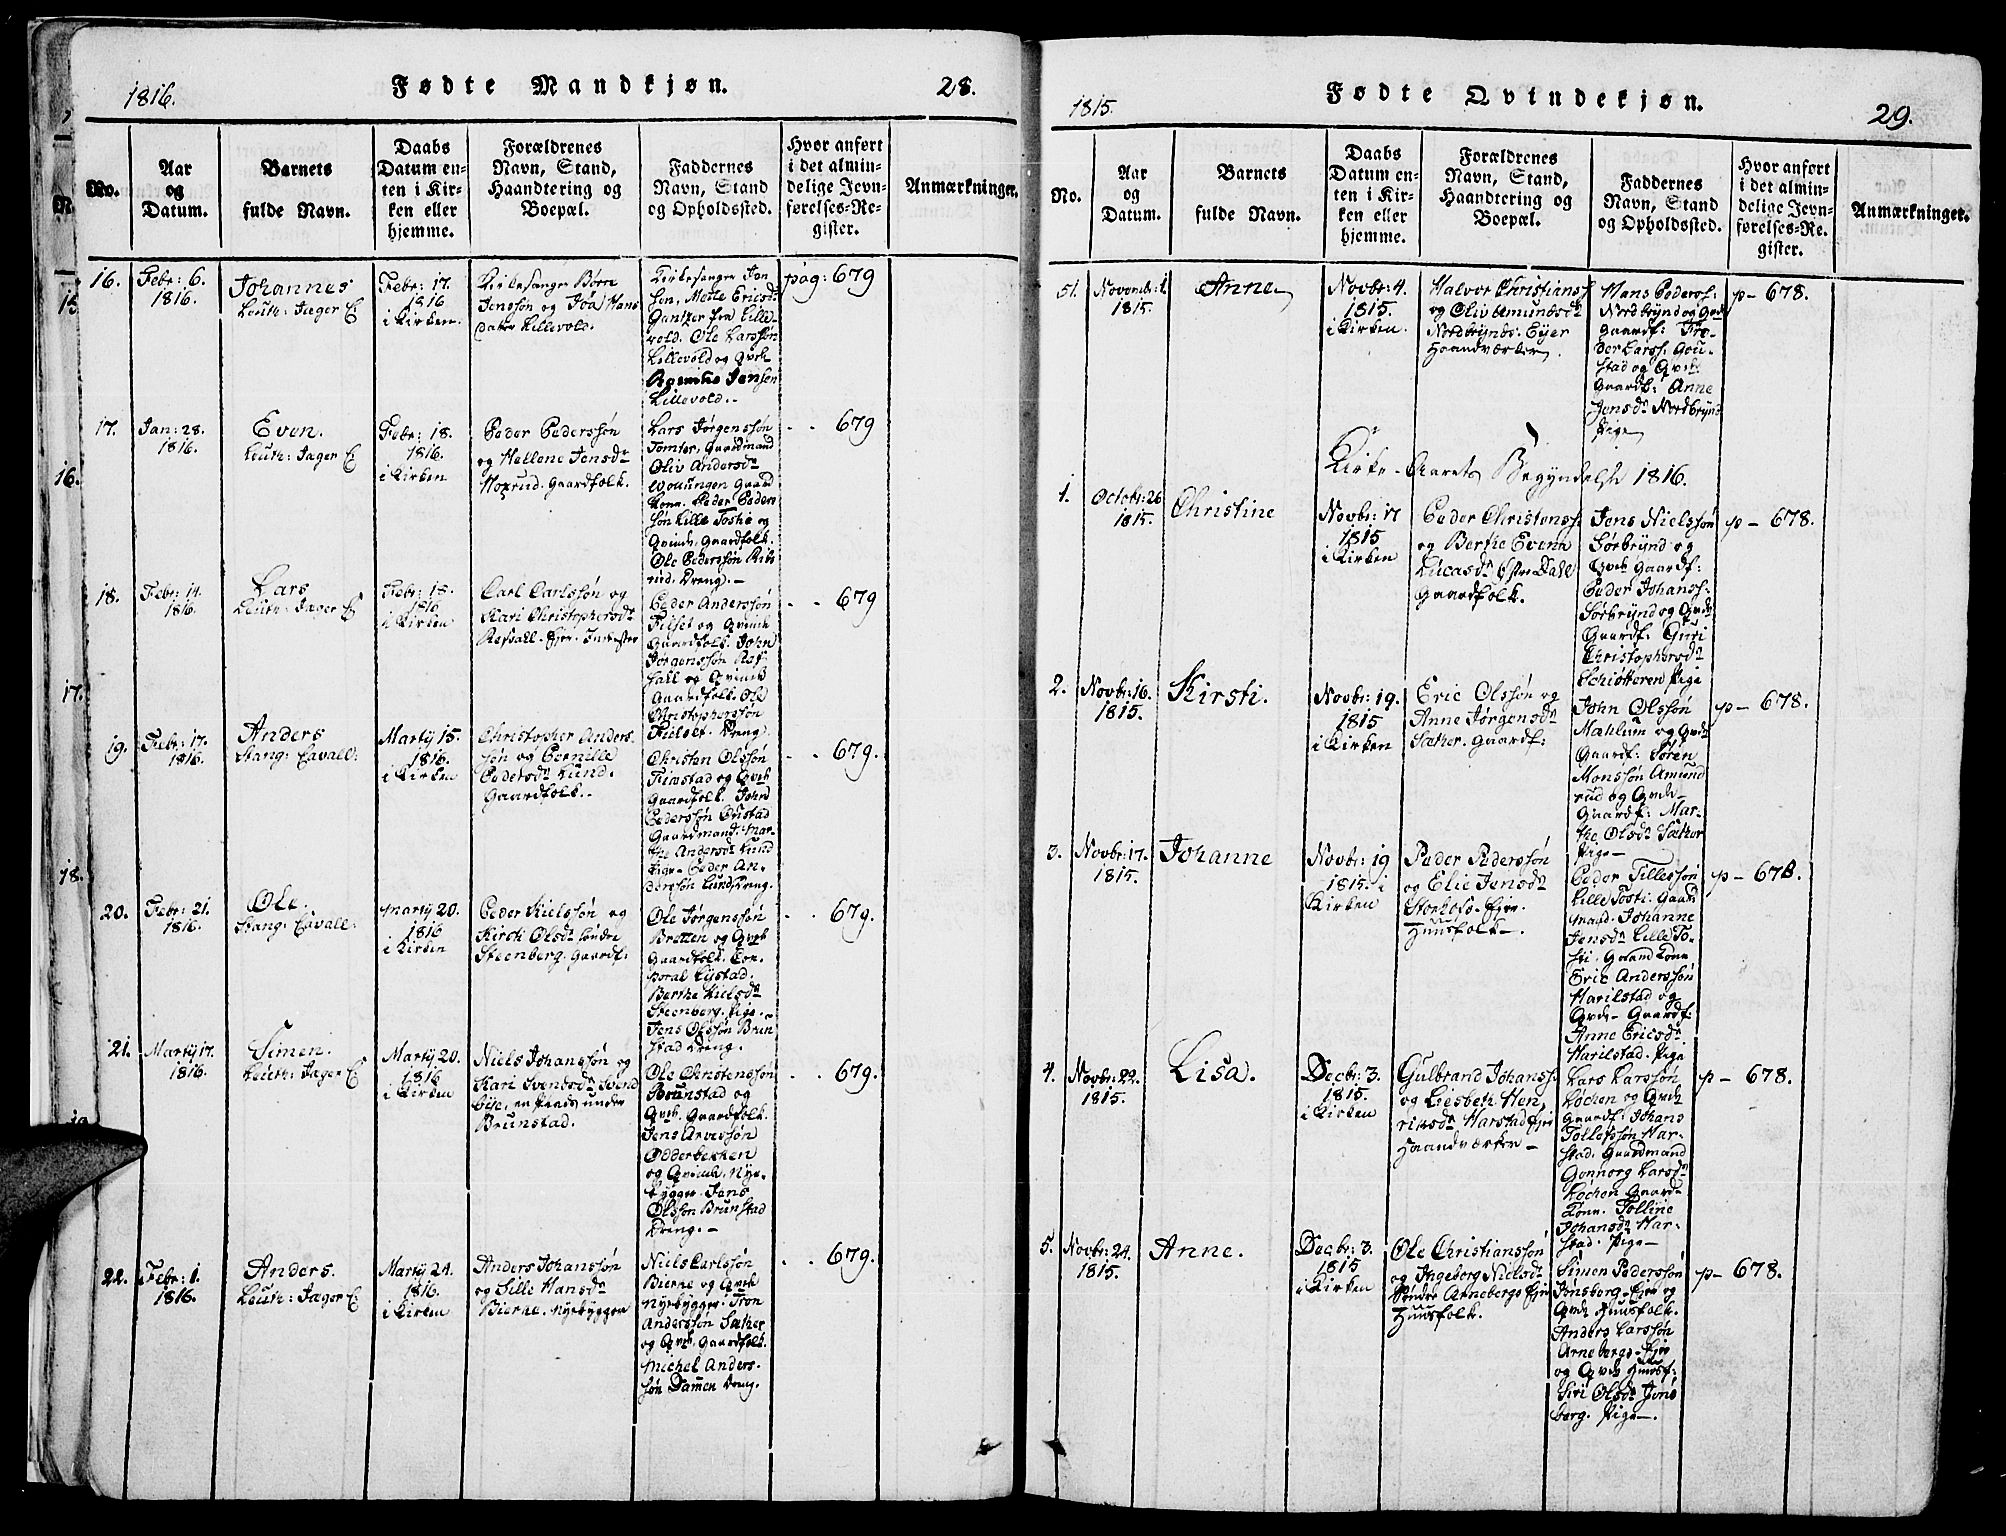 1816. Fødte Mandkjøn. 28.
No.
Aar
og
Datum.
Barnets
fulde Navn.
Daabs
Datum en-
ten i Kir-
ken eller
hjemme.
Forældrenes
Navn, Stand,
Haandtering og
Boepæl.
Faddernes
Navn, Stand
og Opholdssted.
Hvor anført
i det almin-
delige Jevn-
førelses-Re-
gister.
Anmærkninger.
16.
Febr: 6.
1816.
Johannes
Leuth: Jæger C:
Febr: 17.
1816
i Kirken.
Kirkesanger Børre
Jenssøn og Hans
dater Lillevold.
Kirkesanger Jon
søn, Mette Ericsdr
Gantzer fra Lille
vold. Ole Larssøn
Lillevold og Qvek
Jensen
Lillevold.
pag: 679
17.
Jan: 28.
1816.
Even.
Leuth: Jæger C:
Febr: 18.
1816.
i Kirken
Peder Pederssøn
og Hellene Jensdr
Hoxrud. Gaardfolk.
Lars Jørgenssøn
Tomter, Gaardmand
Oliv Andersdr
Gaard
kone. Peder Peders
søn Lille Toshie og
Qvinde, Gaardfolk.
Ole Pederssøn
rud, Dreng.
- - 679
18.
Febr: 14.
1816.
Lars
Leuth: Jæger C:
Febr: 18.
1816
i Kirken
Carl Carlssøn og
Kari Christophersdr
Refsall. Ejer. Inderster
Peder Anderssøn
Filset og Qvinde
Gaardfolk. John
Jørgenssøn Ref
sall og Qvinde
Gaardfolk. Ole
Christopherssøn
Fielset. Dreng.
- - 679
19.
Febr: 17.
1816.
Anders
Stang: Cavall:
Martij 15.
1816.
i Kirken
Christopher Anders
søn og Pernille
Pedersdr Lund.
Gaardfolk.
Christen Olssøn
Fimstad og Qvek
Gaardfolk. John
Pederssøn Enstad
Gaardmand. Mar-
the Andersdr Lund
Pige. Peder An-
derssøn Lund Dreng.
- - 679.
20.
Febr: 21.
1816.
Ole.
Stang: Cavall:
Martij 20.
1816
i Kirken
Peder Kielssøn og
Kirsti Olsdr Søndre
Steenberg. Gaardf:
Ole Jørgenssøn
Bratten og Qvek
Gaardfolk. Cor-
poral Lystad.
Berthe Kielsdr
Steenberg. Pige.
Jens Olssøn Brun
stad Dreng.
- - 679.
21.
Martij 17.
1816.
Simen.
Leuth: Jæger C:
Martij 20.
1816
i Kirken
Niels Johanssøn og
Kari Svendsdr Svend
bye, en Plads under
Brunstad.
Ole Christenssøn
Brunstad og
Qvek. Gaardfolk.
Jens Arvessøn
Odderbekken
og Qvinde, Nye-
bygger. Jens
Olssøn Brunstad
Dreng.
- - 679.
22.
Febr: 1.
1816.
Anders.
Leuth: Jæger C:
Martij 24.
1816.
i Kirken
Anders Johanssøn
og Sille Hansdr
Bierke, Nyebygger
Niels Carlssøn
Bierke og Qvek
Nyebygger. Tron
Anderssøn Sæther
og Qvek. Gaardfolk.
Michel Anders-
søn Dammen Dreng.
- - 679.
1815. Fødte Qvindekjøn. 29.
No.
Aar
og
Datum.
Barnets
fulde Navn.
Daabs
Datum en-
ten i Kir-
ken eller
hjemme.
Forældrenes
Navn, Stand,
Haandtering og
Boepæl.
Faddernes
Navn, Stand
og Opholdssted.
Hvor anført
i det almin-
delige Jevn-
førelses-Re-
gister.
Anmærkninger.
51.
Novembr: 1.
1815.
Anne
Novbr: 4.
1815.
i Kirken.
Halvor Christianss:
og Oliv Emundsdr
Nordbrynds: Ejer
Haandværker.
Hans Pederss:
Nordbrynd og Qvek
Gaardf: Pe-
der Larss: Gou-
stad og Qvek
Gaardf: Anne
Jensdr Nordbrynd
Pige
p - 678.
Kirke-Aarets Begyndelse 1816.
1.
Octobr: 26
1815.
Christine
Novbr: 17
1815
i Kirken
Peder Christenss:
og Berthe Evena
Lucasdr Østre Dall
Gaardfolk.
Jens Nielssøn
Sørbrynd og
Qvek Gaardf:
Peder Johanss:
Sørbrynd og Qvek
Gaardf: Guri
Christophersdr
Schiøtteren Pige
p - 678.
2.
Novbr: 16.
1815.
Kirsti.
Novbr: 19.
1815
i Kirken
Eric Olssøn og
Anne Jørgensdr
Sæther. Gaardf:
John Olssøn
Mæhlum og Qvek
Gaardf: Søren
Monssøn Amund
rud og Qvek
Gaardf: Mar-
the Olsdr Sæther
Pige
p - 678.
3.
Novbr: 17.
1815.
Johanne
Novbr: 19
1815. i
Kirken
Peder Pederssøn
og Elie Jensdr
Storhols-Ejer.
Huusfolk.
Peder Tillessøn
Lille Tosti. Gaard
mand. Johanne
Jensdr Lille To-
sti. Gaard Kone
Eric Anderssøn
Harilstad og
Qvek Gaardf:
Anne Ericsdr
Harilstad. Pige
p - 678.
4.
Novbr: 22.
1815.
Lisa.
Decbr: 3.
1815.
i Kirken
Gulbrand Johanss:
og Liesbeth Hen
richsdr Harstad Ejer
Haandværker
Lars Larssøn
Løchen og Qvek
Gaardf: Johans
Tollefssøn Har-
stad. Gaardmand
Gonnorg Larsdr
Løchen Gaard-
kone. Polline
Johansdr Har-
stad. Pige
p - 678.
5.
Novbr: 24.
1815.
Anne.
Decbr: 3.
1815
i Kirken
Ole Christianssøn
og Ingeborg Nielsdr
Søndre Arneberg Ejer
Huusfolk.
Simen Pederssøn
Jonsborg-Ejer og
Qvek Huusfolk.
Anders Larssøn
Arneberg-Ejer
og Qvek Huusf:
Siri Olsdr Jons
berg. Pige
p - 678.